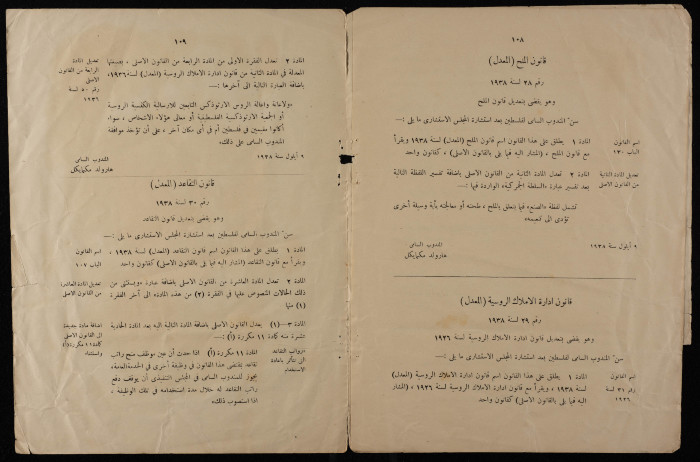 ١٠٨
قانون الملح (المعدل)
رقم ٢٨ لسنة ١٩٣٨
وهو يقضي بتعديل قانون الملح
سنّ المندوب السامي لفلسطين بعد استشارة المجلس الاستشاري ما يلي :—
اسم القانون
الباب ١٣٠
المادة ١ يطلق على هذا القانون اسم قانون الملح (المعدل) لسنة ١٩٣٨ ويقرأ
مع قانون الملح ، (المشار اليه فيما يلي بالقانون الأصلي) ، كقانون واحد
تعديل المادة الثانية
من القانون الأصلي
المادة ٢ تعدل المادة الثانية من القانون الأصلي باضافة تفسير اللفظة التالية
بعد تفسير عبارة «السلطة الجمركية» الواردة فيها :—
تشمل لفظة «الصنع» فيما يتعلق بالملح ، طحنه أو معالجته بأية وسيلة أخرى
تؤدي الى تنعيمه»
٩ أيلول سنة ١٩٣٨
المندوب السامي
هارولد مكمايكل
قانون ادارة الاملاك الروسية (المعدل)
رقم ٢٩ لسنة ١٩٣٨
وهو يقضي بتعديل قانون ادارة الاملاك الروسية لسنة ١٩٢٦
سنّ المندوب السامي لفلسطين بعد استشارة المجلس الاستشاري ما يلي :—
اسم القانون
رقم ٣١ لسنة
١٩٢٦
المادة ١ يطلق على هذا القانون اسم قانون ادارة الاملاك الروسية (المعدل)
لسنة ١٩٣٨ ، ويقرأ مع قانون ادارة الاملاك الروسية لسنة ١٩٢٦ ، (المشار
اليه فيما يلي بالقانون الأصلي) كقانون واحد
١٠٩
تعديل المادة
الرابعة من القانون
الأصلي
رقم ٤٠ لسنة
١٩٣٦
المادة ٢ تعدل الفقرة الأولى من المادة الرابعة من القانون الأصلي ، بصيغتها
المعدلة في المادة الثانية من قانون ادارة الاملاك الروسية (المعدل) لسنة ١٩٣٦،
باضافة العبارة التالية الى آخرها :—
«ولاعانة واعالة الروس الارثوذكس التابعين للارسالية الكنسية الروسية
أو الجمعية الارثوذكسية الفلسطينية أو موالي هؤلاء الاشخاص ، سواء
أكانوا مقيمين في فلسطين أم في أي مكان آخر ، على أن تؤخذ موافقة
المندوب السامي على ذلك»
٩ أيلول سنة ١٩٣٨
المندوب السامي
هارولد مكمايكل
قانون التقاعد (المعدل)
رقم ٣٠ لسنة ١٩٣٨
وهو يقضي بتعديل قانون التقاعد
سنّ المندوب السامي لفلسطين بعد استشارة المجلس الاستشاري ما يلي :—
اسم القانون
الباب ١٠٧
المادة ١ يطلق على هذا القانون اسم قانون التقاعد (المعدل) لسنة ١٩٣٨ ،
ويقرأ مع قانون التقاعد (المشار اليه فيما يلي بالقانون الأصلي) كقانون واحد
تعديل المادة العاشرة
من القانون الأصلي
المادة ٢ تعدل المادة العاشرة من القانون الأصلي باضافة عبارة «ويستثنى من
ذلك الحالات المنصوص عليها في الفقرة (٢) من هذه المادة» الى آخر الفقرة
(١) منها
اضافة مادة جديدة
الى القانون الأصلي
كالمادة ١١ مكررة (أ)
المادة ٣—(١) يعدل القانون الأصلي باضافة المادة التالية اليه بعد المادة الحادية
عشرة منه كالمادة ١١ مكررة (أ) :—
«رواتب التقاعد
التي تتأثر باعادة
الاستخدام
المادة ١١ مكررة (أ) اذا حدث أن عين موظف منح راتب
تقاعد بمقتضى هذا القانون في وظيفة أخرى في الخدمة العامة،
يجوز للمندوب السامي في المجلس التنفيذي أن يوقف دفع
راتب التقاعد له خلال مدة استخدامه في تلك الوظيفة ،
اذا استصوب ذلك»